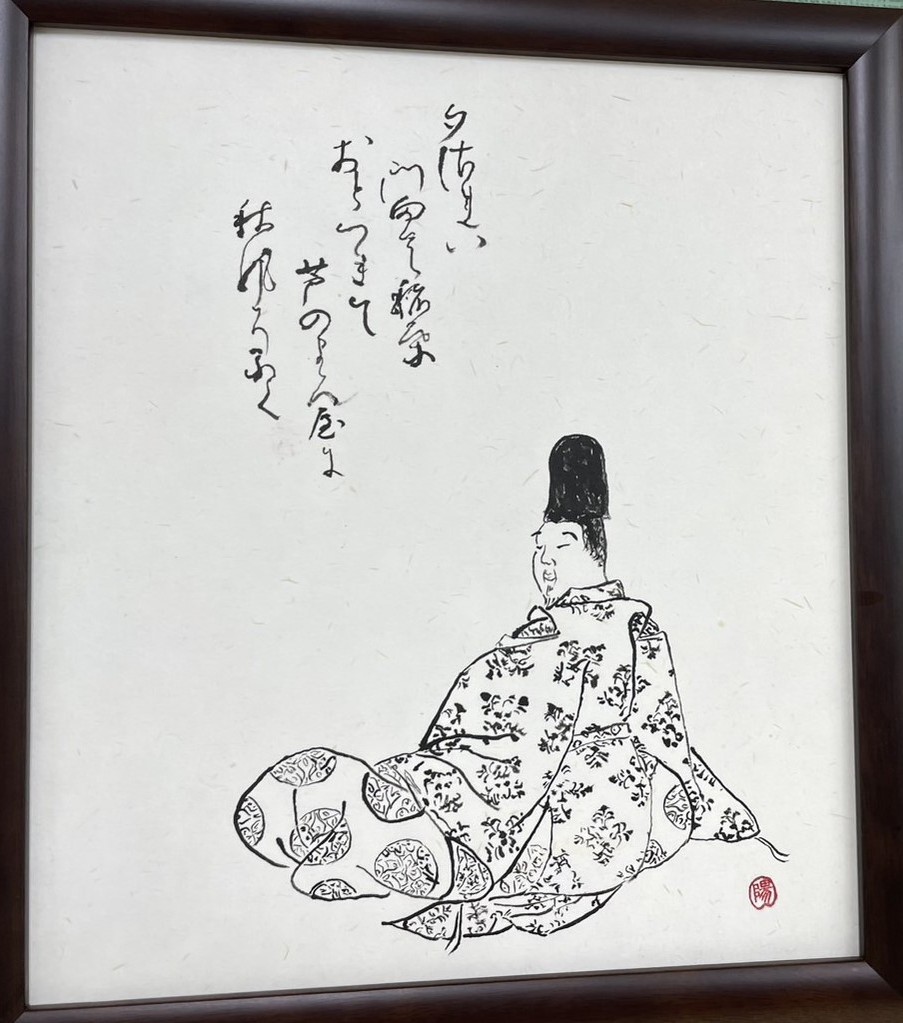 夕されハ
門田の稲葉
おとつれて
芦のまろ屋に
秋風そふく
陽